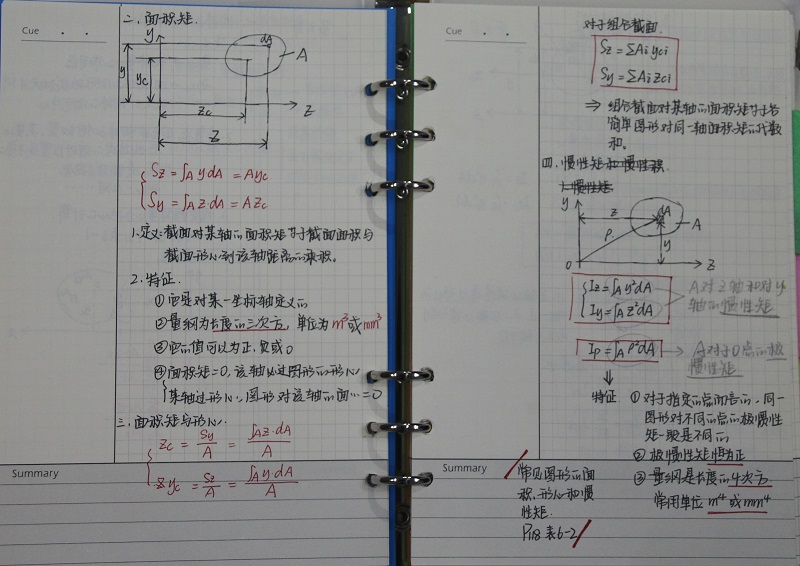 Cue
二、面积矩.
y
dA
A
y
yc
zc
z
z
Sz = ∫A y dA = Ayc
Sy = ∫A z·dA = Azc
1.定义:截面对某轴的面积矩等于截面面积与
截面形心到该轴距离的乘积。
2.特征.
①它是对某一坐标轴定义的
②量纲为长度的三次方,单位为m³或mm³
③它的值可以为正,负或0
④面积矩=0,该轴必过图形的形心
某轴过形心,图形对该轴的面…=0
三.面积矩与形心.
zc = Sy/A = ∫A z·dA/A
yc = Sz/A = ∫A y·dA/A
Summary
Cue
对于组合截面.
Sz = ΣAi yci
Sy = ΣAi zci
⇒ 组合截面对某轴的面积矩等于各
简单图形对同一轴面积矩的代数
和。
四.惯性矩和惯性积.
1.惯性矩
y
z
dA
A
ρ
y
0
z
Iz = ∫A y²dA
Iy = ∫A z²dA
A对z轴和对y
轴的惯性矩
Ip = ∫A ρ²dA
A对于O点的极
惯性矩
特征
①对于指定的点而言的,同一
图形对不同的点的极惯性
矩一般是不同的
②极惯性矩恒为正
③量纲是长度的4次方
常用单位 m⁴ 或 mm⁴
Summary
常见图形的面
积,形心和惯
性矩.
P118 表6-2